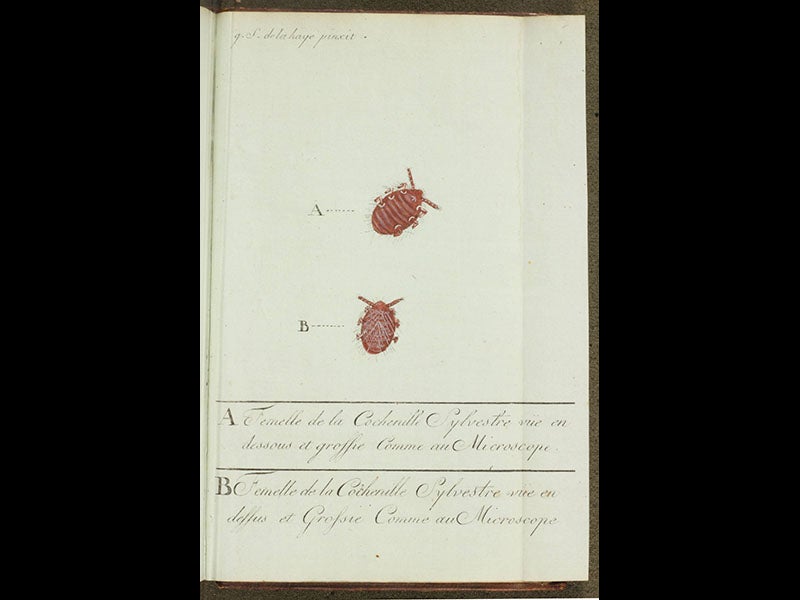 g. S. delahaye pinxit.
A
B
A Femelle de la Cochenille Sylvestre vüe en
dessous et grossie Comme au Microscope.
B Femelle de la Cochenille Sylvestre vüe en
dessus et Grossie Comme au Microscope